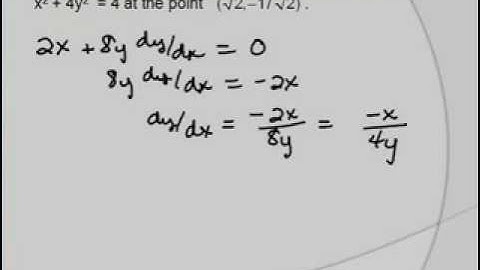 x² + 4y² = 4 at the point (√2,–1/√2) .
2x + 8y dy/dx = 0
8y dy/dx = -2x
dy/dx = -2x/8y = -x/4y